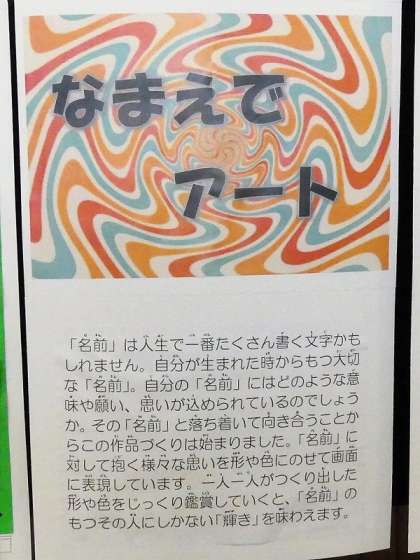 なまえで
アート
「名前」は人生で一番たくさん書く文字かも
しれません。自分が生まれた時からもつ大切
な「名前」。自分の「名前」にはどのような意
味や願い、思いが込められているのでしょう
か。その「名前」と落ち着いて向き合うことか
らこの作品づくりは始まりました。「名前」に
対して抱く様々な思いを形や色にのせて画面
に表現しています。一人一人がつくり出した
形や色をじっくり鑑賞していくと、「名前」の
もつその人にしかない「輝き」を味わえます。